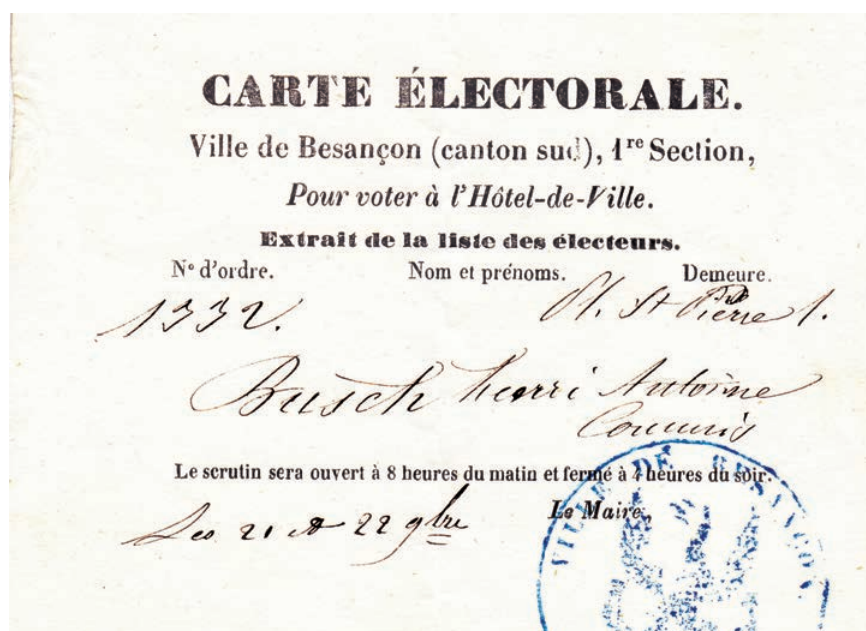 CARTE ÉLECTORALE.
Ville de Besançon (canton sud), 1re Section,
Pour voter à l'Hôtel-de-Ville.
Extrait de la liste des électeurs.
N° d'ordre. Nom et prénoms. Demeure.
1332. Pl. St Pierre 1.
Busch henri Antoine
Commis
Le scrutin sera ouvert à 8 heures du matin et fermé à 4 heures du soir.
Les 21 et 22 9bre
Le Maire,
VILLE DE BESANÇON